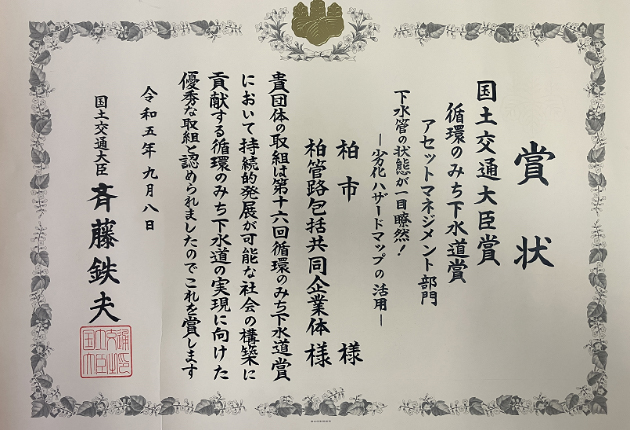 賞状
国土交通大臣賞
循環のみち下水道賞
アセットマネジメント部門
下水管の状態が一目瞭然！
―劣化ハザードマップの活用―
柏市 様
柏管路包括共同企業体 様
貴団体の取組は第十六回循環のみち下水道賞
において持続的発展が可能な社会の構築に
貢献する循環のみち下水道の実現に向けた
優秀な取組と認められましたのでこれを賞します
令和五年九月八日
国土交通大臣 斉藤鉄夫